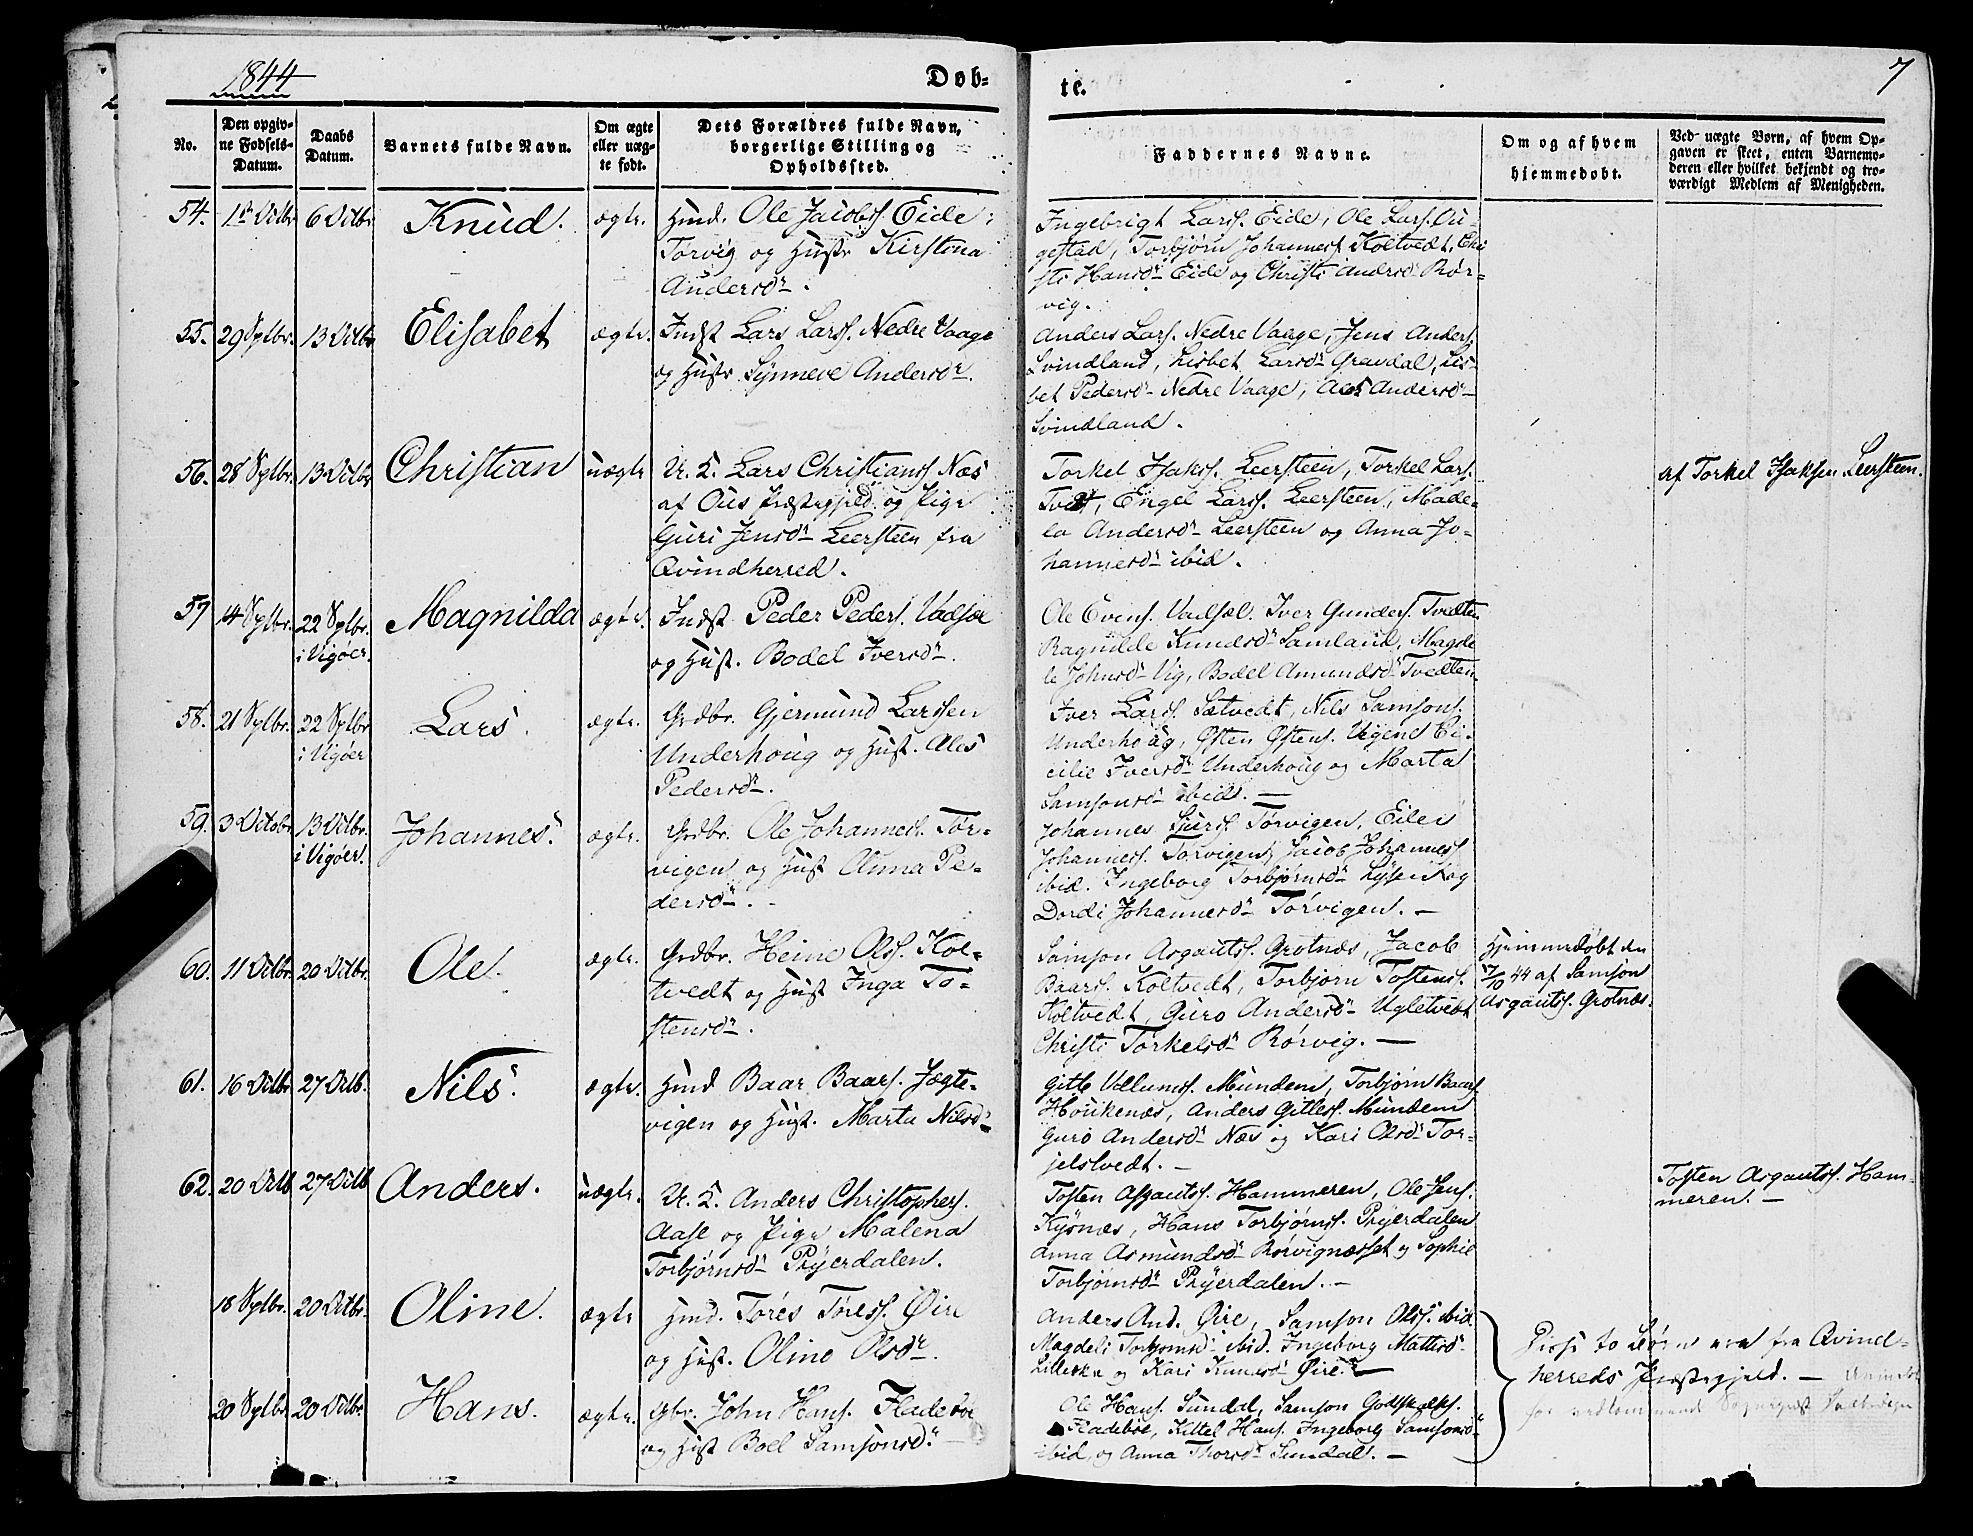 1844
Døb-
te.
7
No.
Den opgiv-
ne Fødsels-
Datum.
Daabs
Datum.
Barnets fulde Navn.
Om ægte
eller uæg-
te født.
Dets Forældres fulde Navn,
borgerlige Stilling og
Opholdssted.
Faddernes Navne.
Om og af hvem
hjemmedøbt.
Ved uægte Børn, af hvem Op-
gaven er skeet, enten Barnemo-
deren eller hvilket bekjendt og tro-
værdigt Medlem af Menigheden.
54. 1ste Octbr 6 Octbr Knud. ægte. Huusmd. Ole Jacobs. Eide
Tørvig og Hustr Kirstina
Andersdr.
Ingebrigt Larss. Eide, Ole Lars. Au-
gestad, Torbjørn Johanness Koltvedt, Chri
sti Hansdr Eide og Christi Andersdr Rør-
vig.
55. 29 Sptbr. 13 Octbr Elisabet ægte. Indst Lars Larss. Nedre Vaage
og Hustr. Synneve Andersdr.
Anders Larss. Nedre Vaage, Jens Anders.
Svindland, Lisbet Larsdr Gravdal, Lis-
bet Pedersdr Nedre Vaage, Ales Andersdr
Svindland.
56. 28 Sptbr. 13 Octbr Christian uægte U. K. Lars Christianss. Næs
af Ous Præstegjeld og Pige
Guri Jensdr Leersteen fra
Qvindherred.
Torkel Isaks. Leersteen, Torkel Lars.
Tvedt, Engel Larss. Leersteen, Made-
le Andersdr Leersteen og Anna Jo-
hannesdr ibid.
af Torkel Isaksen Leersteen.
57 14 Sptbr. 22 Sptbr.
i Vigøer. Magnilda ægte. Indst Peder Peders. Vadsæl
og Hust. Bodel Iversdr.
Ole Evens. Vadsæl. Iver Gunders. Tvedten
Ragnilde Knudsdr Samland, Magde
le Johnsdr Vig, Bodel Amundsdr Tvedten
58. 21 Sptbr. 22 Sptbr
i Vigøer Lars. ægte. Grdbr. Gjermund Larssen
Underhoug og Hust. Ales
Pedersdr.
Iver Larss. Sætvedt, Nils Samsons.
Underhoug, Østen Østens. Vigene Ci-
cilie Iversdr Underhoug og Marta
Samsonsdr ibid. —
59. 3 Octobr 13 Octbr.
i Vigøer. Johannes. ægte. Grdbr. Ole Johanness. Tør-
vigen og Hust Anna Pe-
dersdr.
Johannes Sjurss. Tørvigen, Eilev
Johanness. Tørvigen, Jacob Johanness
ibid. Ingeborg Torbjørnsdr og
Dordi Johannesdr Tørvigen. —
60. 11 Octbr. 20 Octbr. Ole. ægte. Grdbr. Heine Olss. Kol-
tvedt og Hust Inga To-
stensdr.
Samson Asgautss. Grotnæs, Jacob
Baars. Koltvedt, Torbjørn Tostenss.
Koltvedt, Guro Andersdr Ugletvedt
Christi Torkelsdr Rørvig. —
Hjemmedøbt den
/10 44 af Samson
Asgautss. Grotnæs.
61. 16 Octbr 27 Octb. Nils. ægte. Huusmd Baar Baars. Jægte-
vigen og Hust. Marta Nilsdr
Gitle Mundem, Torbjørn Baars
Houkenæs, Anders Gitless. Mundem
Guro Andersdr Næs og Kari Olsdr Tor-
jelstvedt. —
62. 20 Octb 27 Octb Anders. uægte. U. K. Anders Christophers.
Aase og Pige Malena
Torbjørnsdr Prÿerdalen.
Tosten Asgautss. Hammeren, Ole Jens.
Kysnæs, Hans Torbjørnss. Prÿerdalen
Anna Asmundsdr Rørvignæsset og Sophie
Torbjørnsdr Prÿerdalen. —
Tosten Asgautss. Ham-
meren. —
18 Sptbr. 20 Octbr. Oline. ægte Huusmd. Tores Toress. Øire
og Hust. Oline Olsdr.
Anders And. Øire, Samson Olss. ibid.
Magdeli Torbjørnsdr ibid. Ingeborg
og Kari Knudsdr Øire. —
20 Sptbr. 20 Octbr. Hans. ægte. Gbr. John Hans. Fladebøe
og Hust Boel Samsonsdr. —
Ole Hans. Sundal, Samson Godskalks.
Fladebøe, Kittel Hans. Ingeborg Samsonsdr
ibid, og Anna Thorsdr Sundal. —
Disse to Børn ere fra Qvind-
herreds Præstegjeld. —